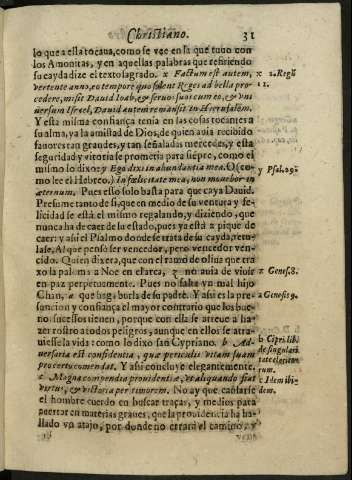 Christiano. 31
lo que a ella tocaua, como se vee en la que tuuo con
los Amonitas, y en aquellas palabras que refiriendo
su cayda dize el texto sagrado. x Factum est autem,
vertente anno, eo tempore quo solent Reges ad bella pro-
cedere, misit Dauid Ioab, & seruos suos cum eo, & vni
uersum Israel, Dauid autem remansit in Hierusalem.
Y esta misma confiança tenia en las cosas tocantes a
su alma, y a la amistad de Dios, de quien auia recibido
fauores tan grandes, y tan señaladas mercedes, y esta
seguridad y vitoria se prometia para siẽpre, como el
mismo lo dixo: y Ego dixi in abundantia mea. O (co-
mo lee el Hebreo.) In fœlicitate mea, non mouebor in
æternum. Pues esso solo basta para que caya Dauid.
Presume tanto de si, que en medio de su ventura y fe-
licidad se està el mismo regalando, y diziendo, que
nunca ha de caer de su estado, pues ya està a pique de
caer: y assi el Psalmo donde se trata de su cayda, retu-
lase. Al que pensò ser vencedor, pero vencedor ven-
cido. Quien dixera, que con el ramo de oliua que tra
xo la paloma a Noe en el arca, z no auia de viuir
en paz perpetuamente. Pues no faltò vn mal hijo
Chan, a que hizo burla de su padre. Y assi es la pre-
suncion y confiança el mayor contrario que los bue-
nos sucessos tienen, porque con ella se atreue a ha-
zer rostro a todos peligros, aunque en ellos se atra-
uiesse la vida: como lo dixo san Cypriano. b Ad-
uersaria est confidentia, quæ periculis vitam suam
pro certo comendat. Y assi concluye elegantemente.
c Magna compendia prouidentiæ, & aliquando fiat
virtus, & victoria per timorem. No ay que cansarse
el hombre cuerdo en buscar traças, y medios para
acertar en materias graues, que la prouidencia ha ha-
llado vn atajo, por donde no errarà el camino, y
x 2. Regũ
11.
y Psal. 29.
z Genes. 8.
a Genesis 9.
b Cipri. lib.
de singulari
tate clerico-
rum.
c Idem ibi-
dem.